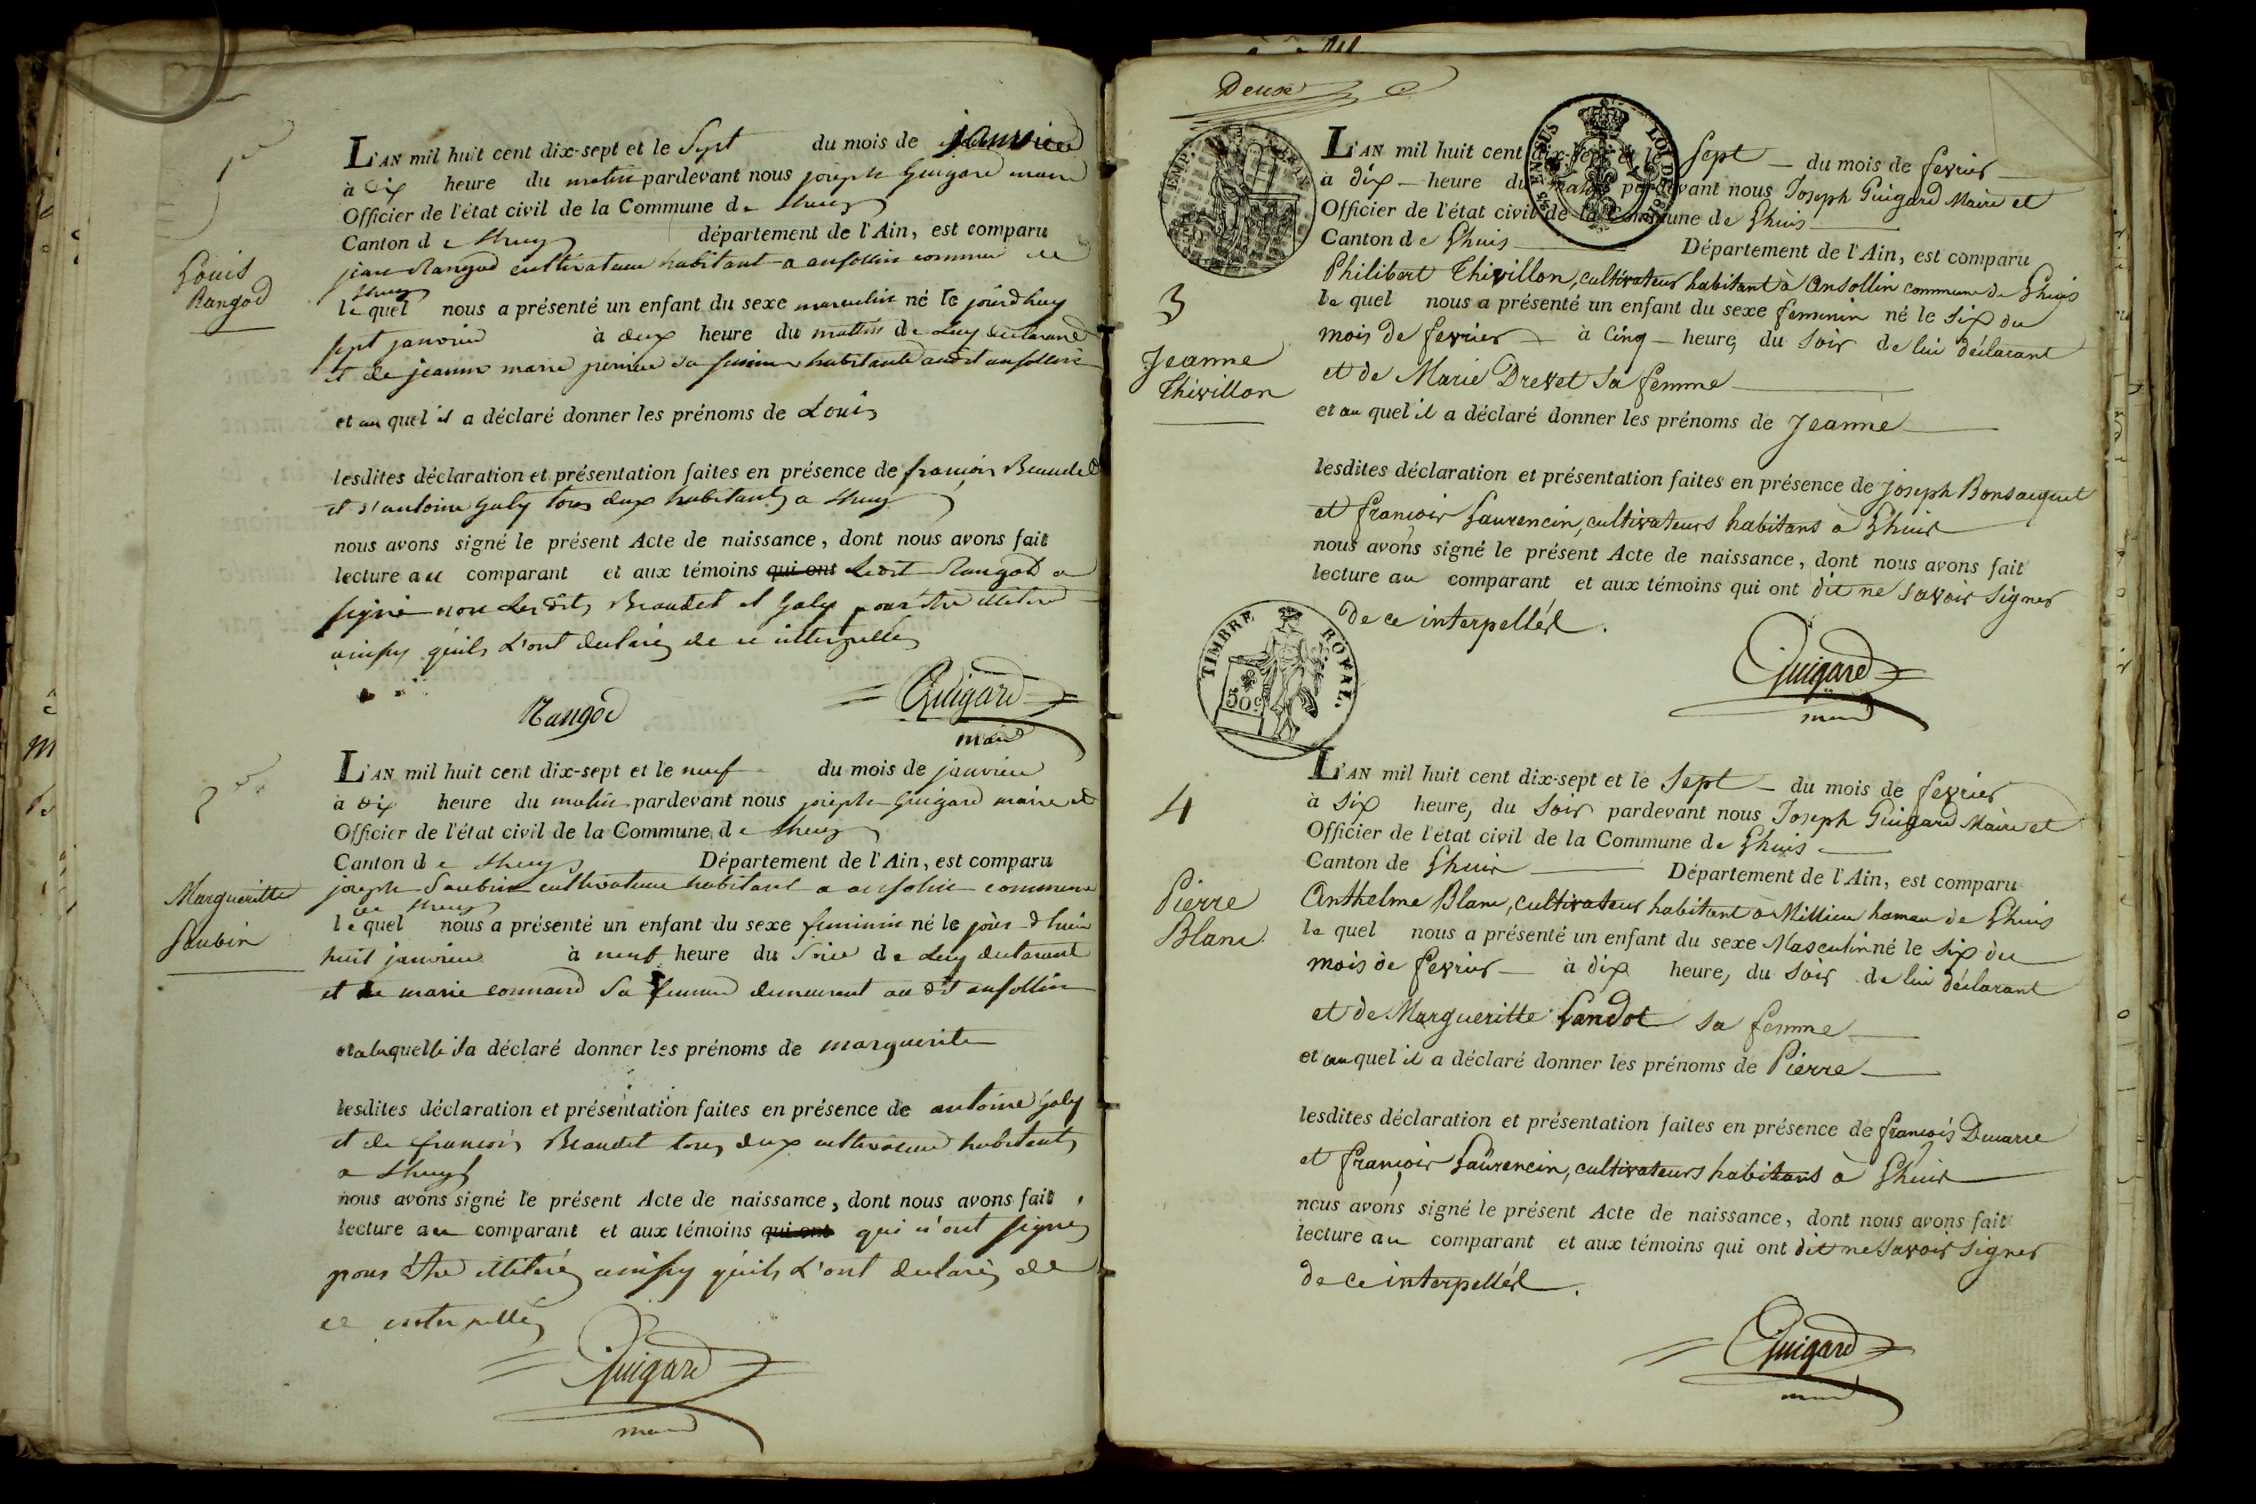 1er
Louis
Rangod
L'AN mil huit cent dix-sept et le Sept du mois de janvier
à dix heure du matin pardevant nous joseph Guigard maire
Officier de l'état civil de la Commune de Lhuys
Canton de Lhuys département de l'Ain, est comparu
jean Rangod cultivateur habitant a ansollin commune de
Lhuys
lequel nous a présenté un enfant du sexe masculin né le jourdhuy
sept janvier à deux heure du mattin de Luy declarant
et de jeanne marie perrier sa femme habitante audit ansollin
et au quel il a déclaré donner les prénoms de Louis
lesdites déclaration et présentation faites en présence de francois Beaudet
et d'antoine Galy tous deux habitants a Lhuys
nous avons signé le présent Acte de naissance, dont nous avons fait
lecture au comparant et aux témoins qui ont Ledit Rangod a
signé non Lesdits Beaudet et Galy pour être illitéré
ainsy quils L'ont declarés de ce interpellés
Rangod
Guigard
maire
2
Margueritte
Saubin
L'AN mil huit cent dix-sept et le neuf du mois de janvier
à dix heure du matin pardevant nous joseph Guigard maire et
Officier de l'état civil de la Commune de Lhuys
Canton de Lhuys Département de l'Ain, est comparu
joseph Saubin cultivateur habitant a ansolin commune
de Lhuys
lequel nous a présenté un enfant du sexe feminin né le jour d'hier
huit janvier à neuf heure du Soir de Luy declarant
et de marie connand Sa femme demeurant au dit ansollin
et a laquelle il a déclaré donner les prénoms de marguerite
lesdites déclaration et présentation faites en présence de antoine Galy
et de francois Beaudet tous deux cultivateur habitants
a Lhuys
nous avons signé le présent Acte de naissance, dont nous avons fait
lecture au comparant et aux témoins qui ont qui n'ont signé
pour être illitérés ainsy quils L'ont declarés de
ce interpellés
Guigard
maire
Deux
EN SUS LOI DE 1816
3
Jeanne
Thivillon
L'AN mil huit cent dix-sept et le Sept du mois de fevrier
à dix heure du matin pardevant nous Joseph Guigard Maire et
Officier de l'état civil de la Commune de Lhuis
Canton de Lhuis Département de l'Ain, est comparu
Philibert Thivillon, cultivateur habitant à Ansollin commune de Lhuis
le quel nous a présenté un enfant du sexe feminin né le six du
mois de fevrier à Cinq heure, du Soir de lui déclarant
et de Marie Drevet Sa femme
et au quel il a déclaré donner les prénoms de Jeanne
lesdites déclaration et présentation faites en présence de joseph Bonsacquet
et françois Laurencin, cultivateurs habitans à Lhuis
nous avons signé le présent Acte de naissance, dont nous avons fait
lecture au comparant et aux témoins qui ont dit ne Savoir Signer
de ce interpellés.
TIMBRE ROYAL
50c
Guigard
maire
4
Pierre
Blanc
L'AN mil huit cent dix-sept et le Sept du mois de fevrier
à six heure, du Soir pardevant nous Joseph Guigard Maire et
Officier de l'état civil de la Commune de Lhuis
Canton de Lhuis Département de l'Ain, est comparu
Anthelme Blanc, cultivateur habitant à Millieu hameau de Lhuis
le quel nous a présenté un enfant du sexe Masculin né le six du
mois de fevrier à dix heure, du Soir de lui déclarant
et de Margueritte Landot sa femme
et au quel il a déclaré donner les prénoms de Pierre
lesdites déclaration et présentation faites en présence de françois Ducarre
et françois Laurencin, cultivateurs habitans à Lhuis
nous avons signé le présent Acte de naissance, dont nous avons fait
lecture au comparant et aux témoins qui ont dit ne Savoir Signer
de ce interpellés.
Guigard
maire